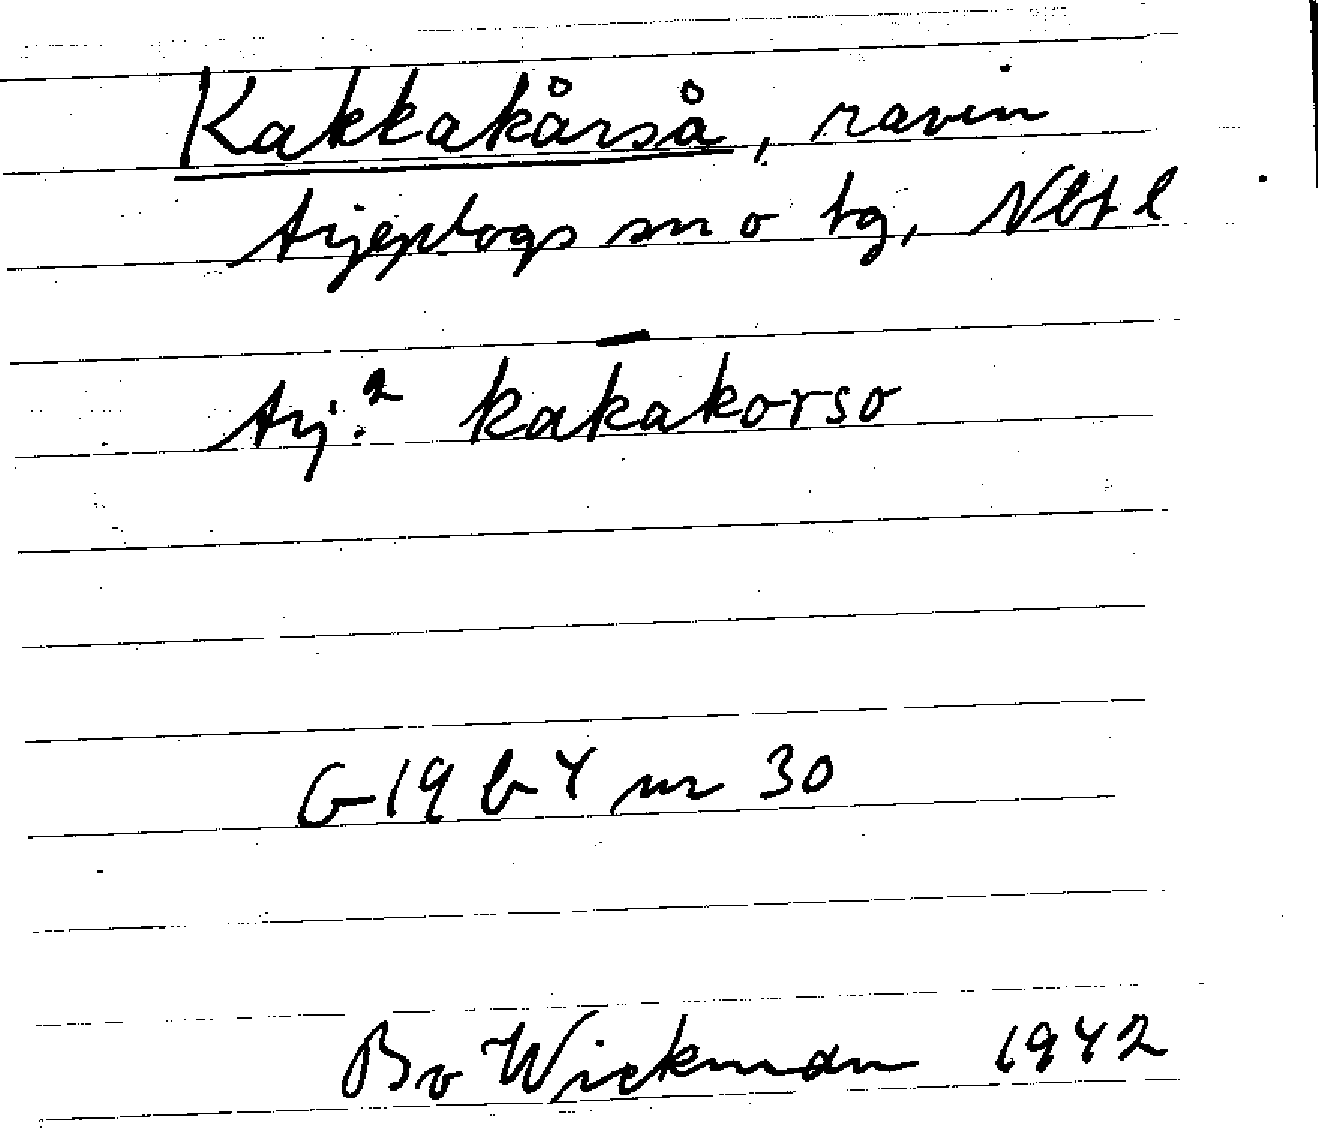 Kakkakårså, ravin
Arjeplogs sn o tg, Nbtl
Arj.² kak̄akorso
G 19 b 4 nr 30
Bo Wickman 1942